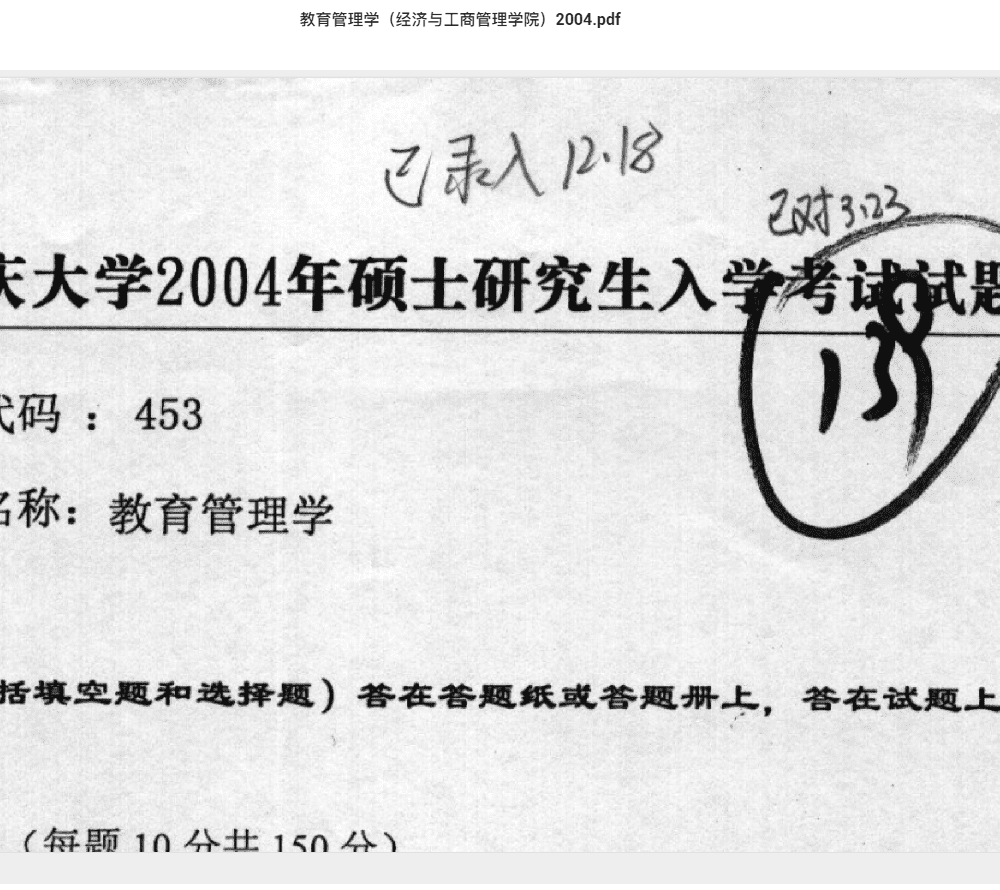 教育管理学（经济与工商管理学院）2004.pdf
已录入 12.18
已对 3.23
庆大学2004年硕士研究生入学考试试题
代码 ： 453
139
名称： 教育管理学
括填空题和选择题）答在答题纸或答题册上，答在试题上
（每题 10 分共 150 分）